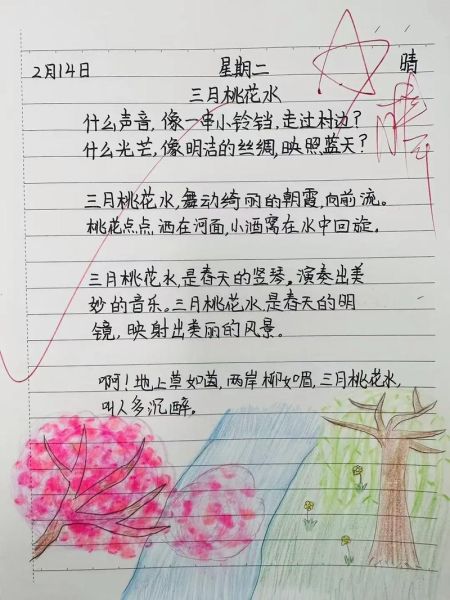 2月14日 星期二 晴
三月桃花水
什么声音,像一串小铃铛,走过村边?
什么光芒,像明洁的丝绸,映照蓝天?
三月桃花水,舞动绮丽的朝霞,向前流。
桃花点点洒在河面,小酒窝在水中回旋。
三月桃花水,是春天的竖琴。演奏出美
妙的音乐。三月桃花水,是春天的明
镜,映射出美丽的风景。
啊!地上草如茵,两岸柳如眉,三月桃花水,
叫人多沉醉。